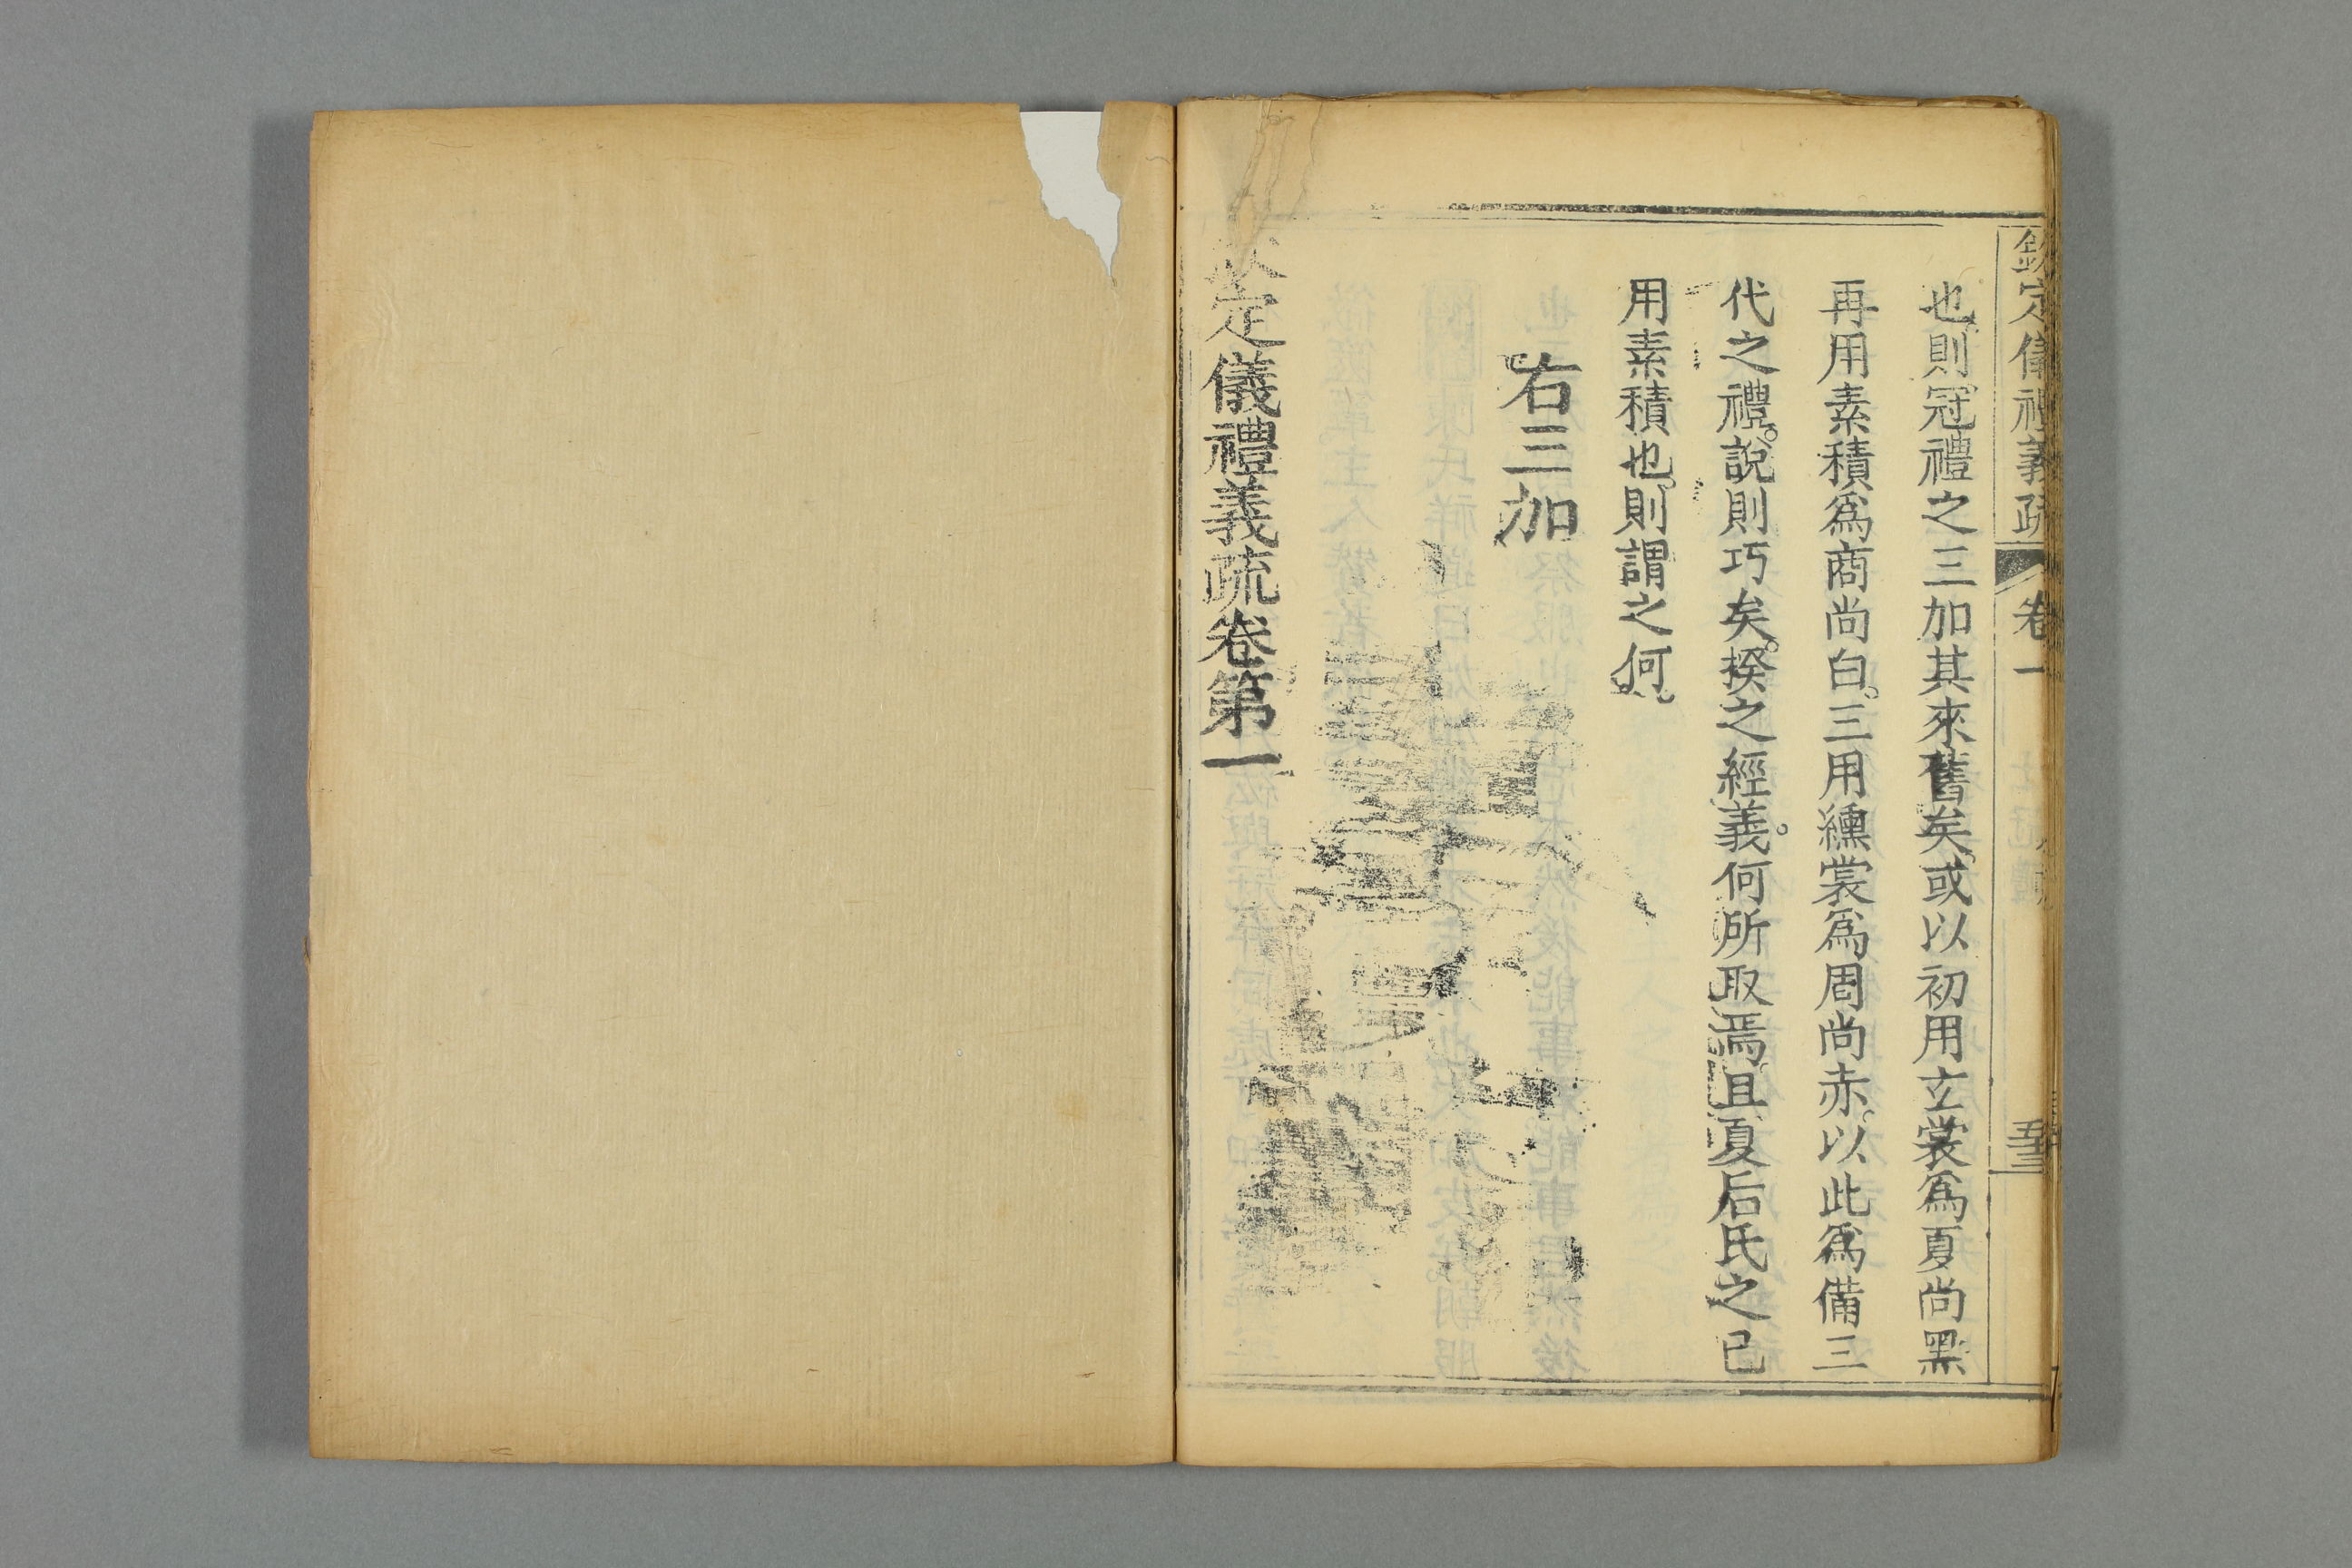 欽定儀禮義疏 卷一 五三
也則冠禮之三加其來舊矣。或以初用玄裳爲夏尚黑
再用素積爲商尚白。三用纁裳爲周尚赤。以此爲備三
代之禮。說則巧矣。揆之經義。何所取焉。且夏后氏之已
用素積也。則謂之何。
右三加
定儀禮義疏卷第一